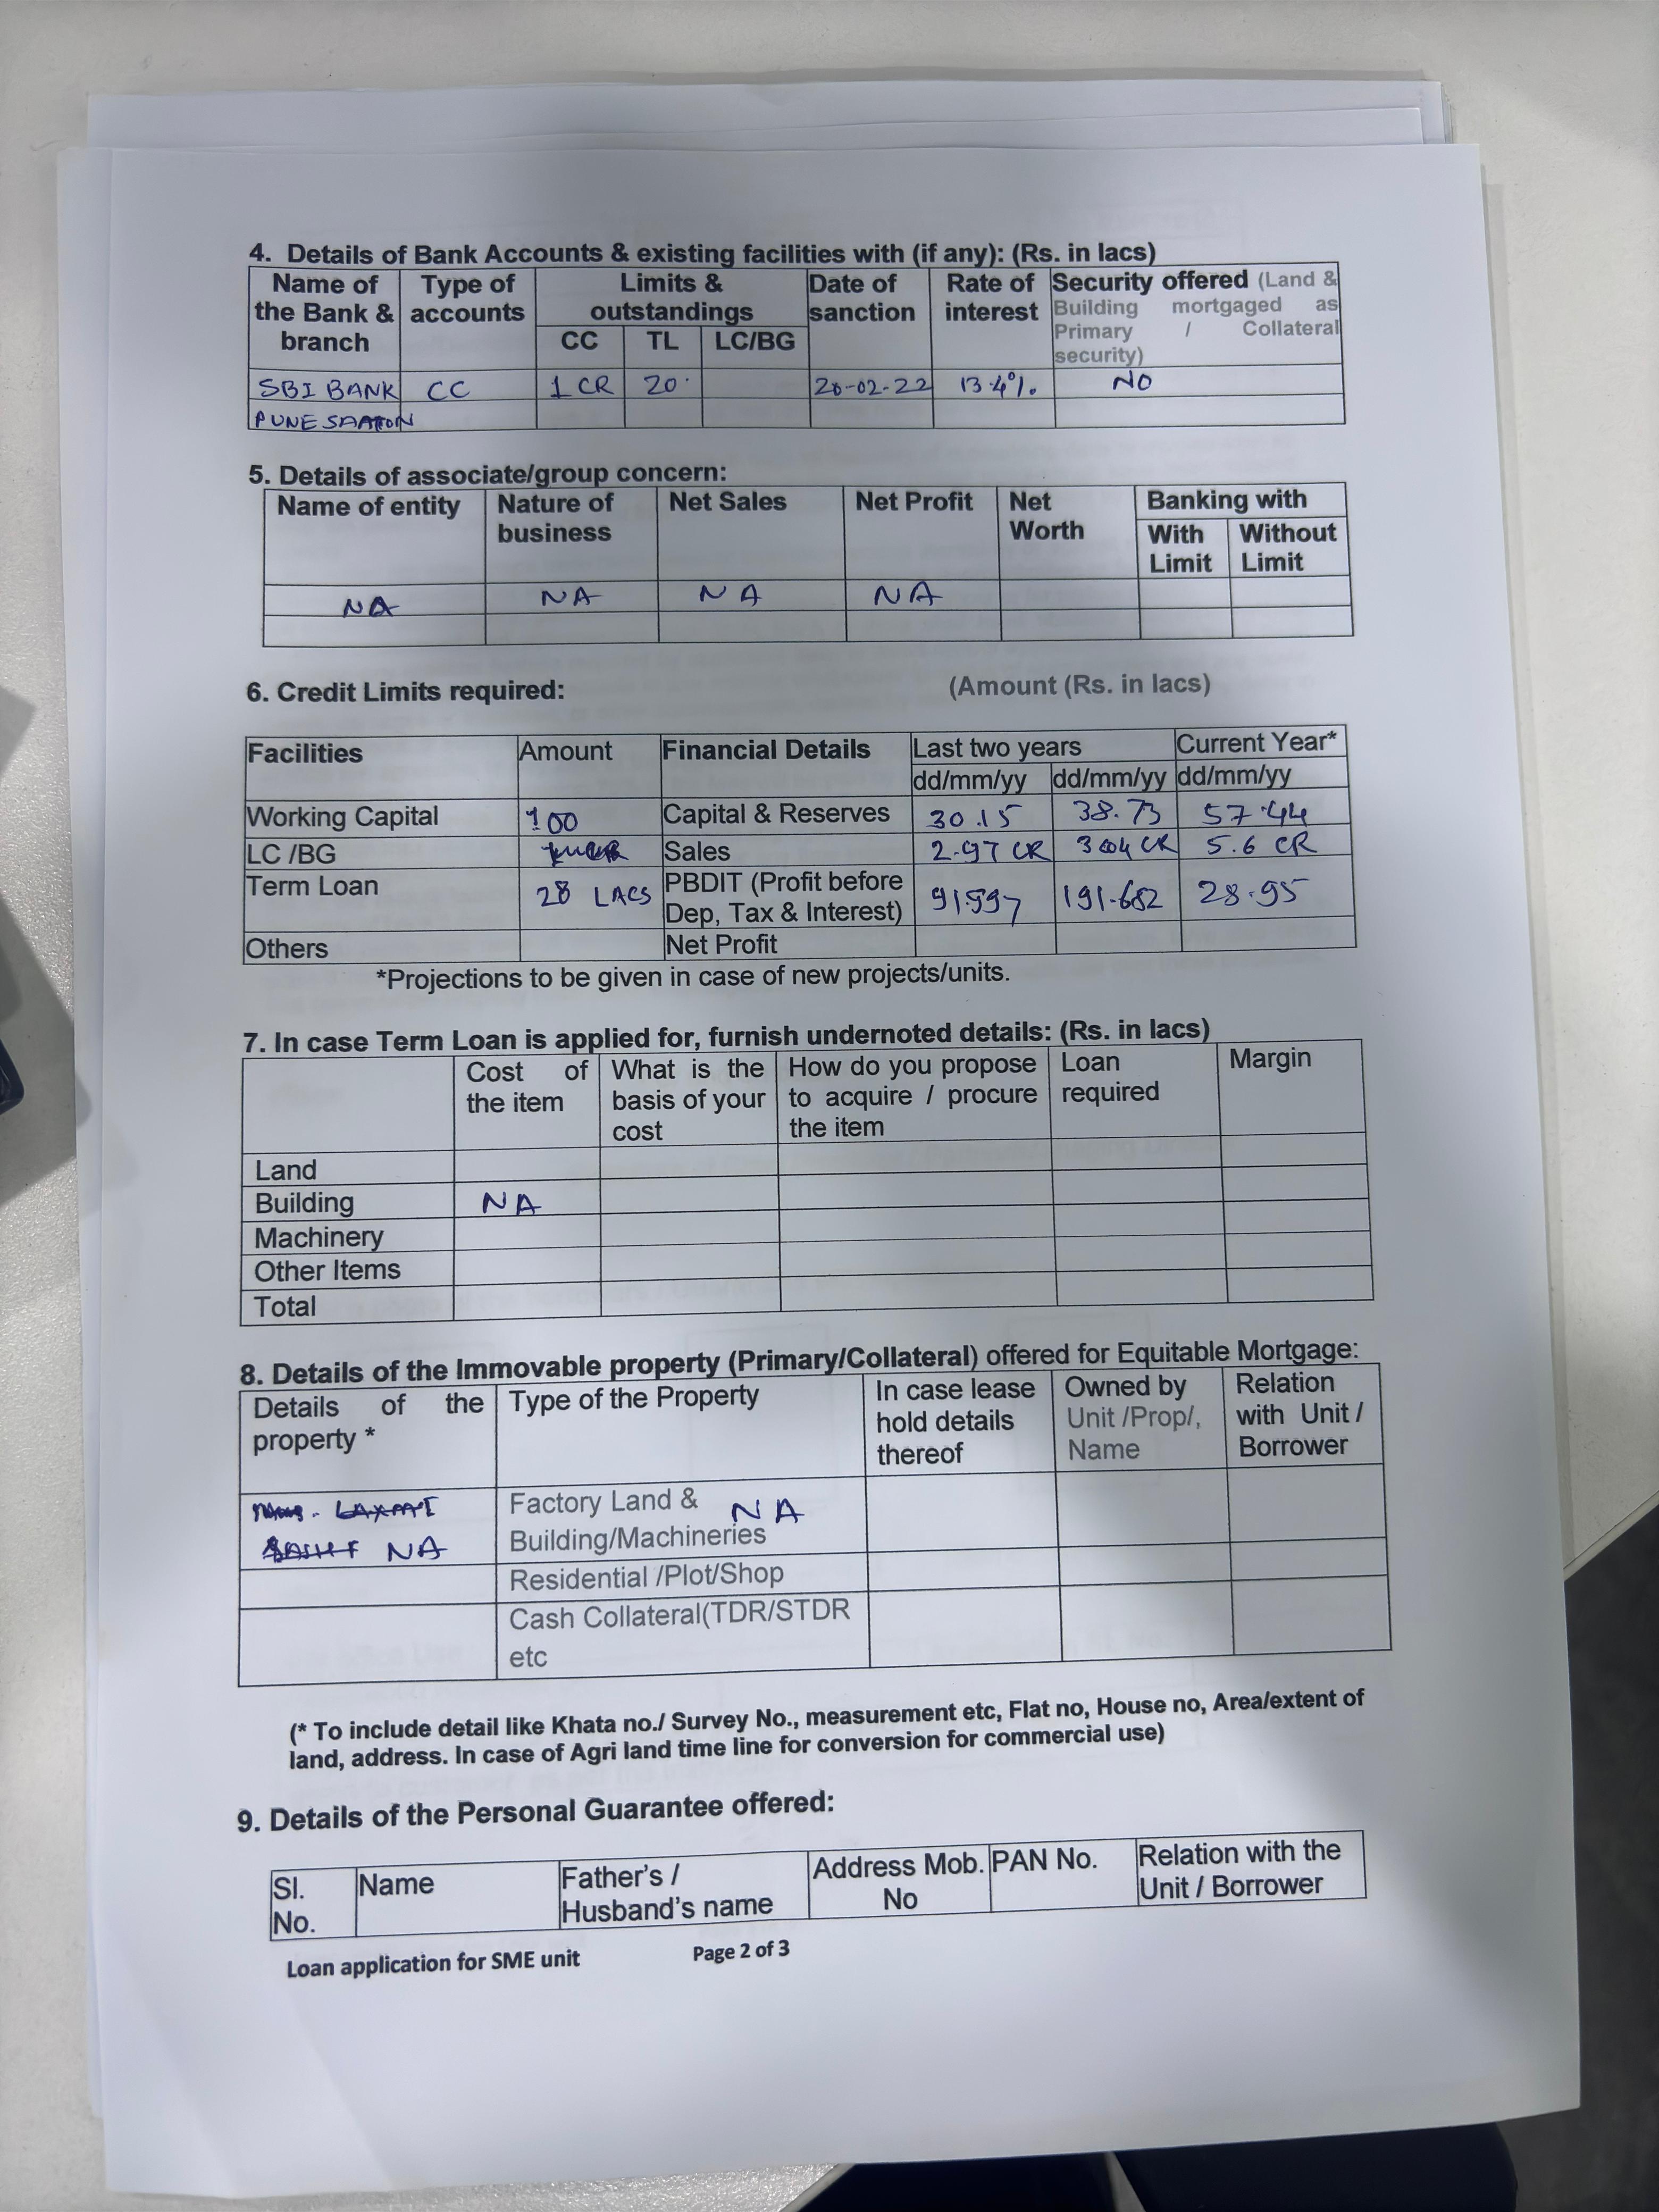 4. Details of Bank Accounts & existing facilities with (if any): (Rs. in lacs)
Name of the Bank & branch Type of accounts Limits & outstandings Date of sanction Rate of interest Security offered (Land & Building mortgaged as Primary / Collateral security)
CC TL LC/BG
SBI BANK CC 1 CR 20 20-02-22 13.4% NO
PUNE
5. Details of associate/group concern:
Name of entity Nature of business Net Sales Net Profit Net Worth Banking with
With Limit Without Limit
NA NA NA NA
6. Credit Limits required: (Amount (Rs. in lacs)
Facilities Amount Financial Details Last two years Current Year*
dd/mm/yy dd/mm/yy dd/mm/yy
Working Capital 100 Capital & Reserves 30.15 38.73 57.44
LC /BG Sales 2.97 CR CR 5.6 CR
Term Loan 28 LACS PBDIT (Profit before Dep, Tax & Interest) 191.682 28.95
Others Net Profit
*Projections to be given in case of new projects/units.
7. In case Term Loan is applied for, furnish undernoted details: (Rs. in lacs)
Cost of the item What is the basis of your cost How do you propose to acquire / procure the item Loan required Margin
Land
Building NA
Machinery
Other Items
Total
8. Details of the Immovable property (Primary/Collateral) offered for Equitable Mortgage:
Details of the property * Type of the Property In case lease hold details thereof Owned by Unit /Prop/, Name Relation with Unit / Borrower
NA Factory Land & Building/Machineries NA
Residential /Plot/Shop
Cash Collateral(TDR/STDR etc
(* To include detail like Khata no./ Survey No., measurement etc, Flat no, House no, Area/extent of
land, address. In case of Agri land time line for conversion for commercial use)
9. Details of the Personal Guarantee offered:
Sl. No. Name Father's / Husband's name Address Mob. No PAN No. Relation with the Unit / Borrower
Loan application for SME unit Page 2 of 3